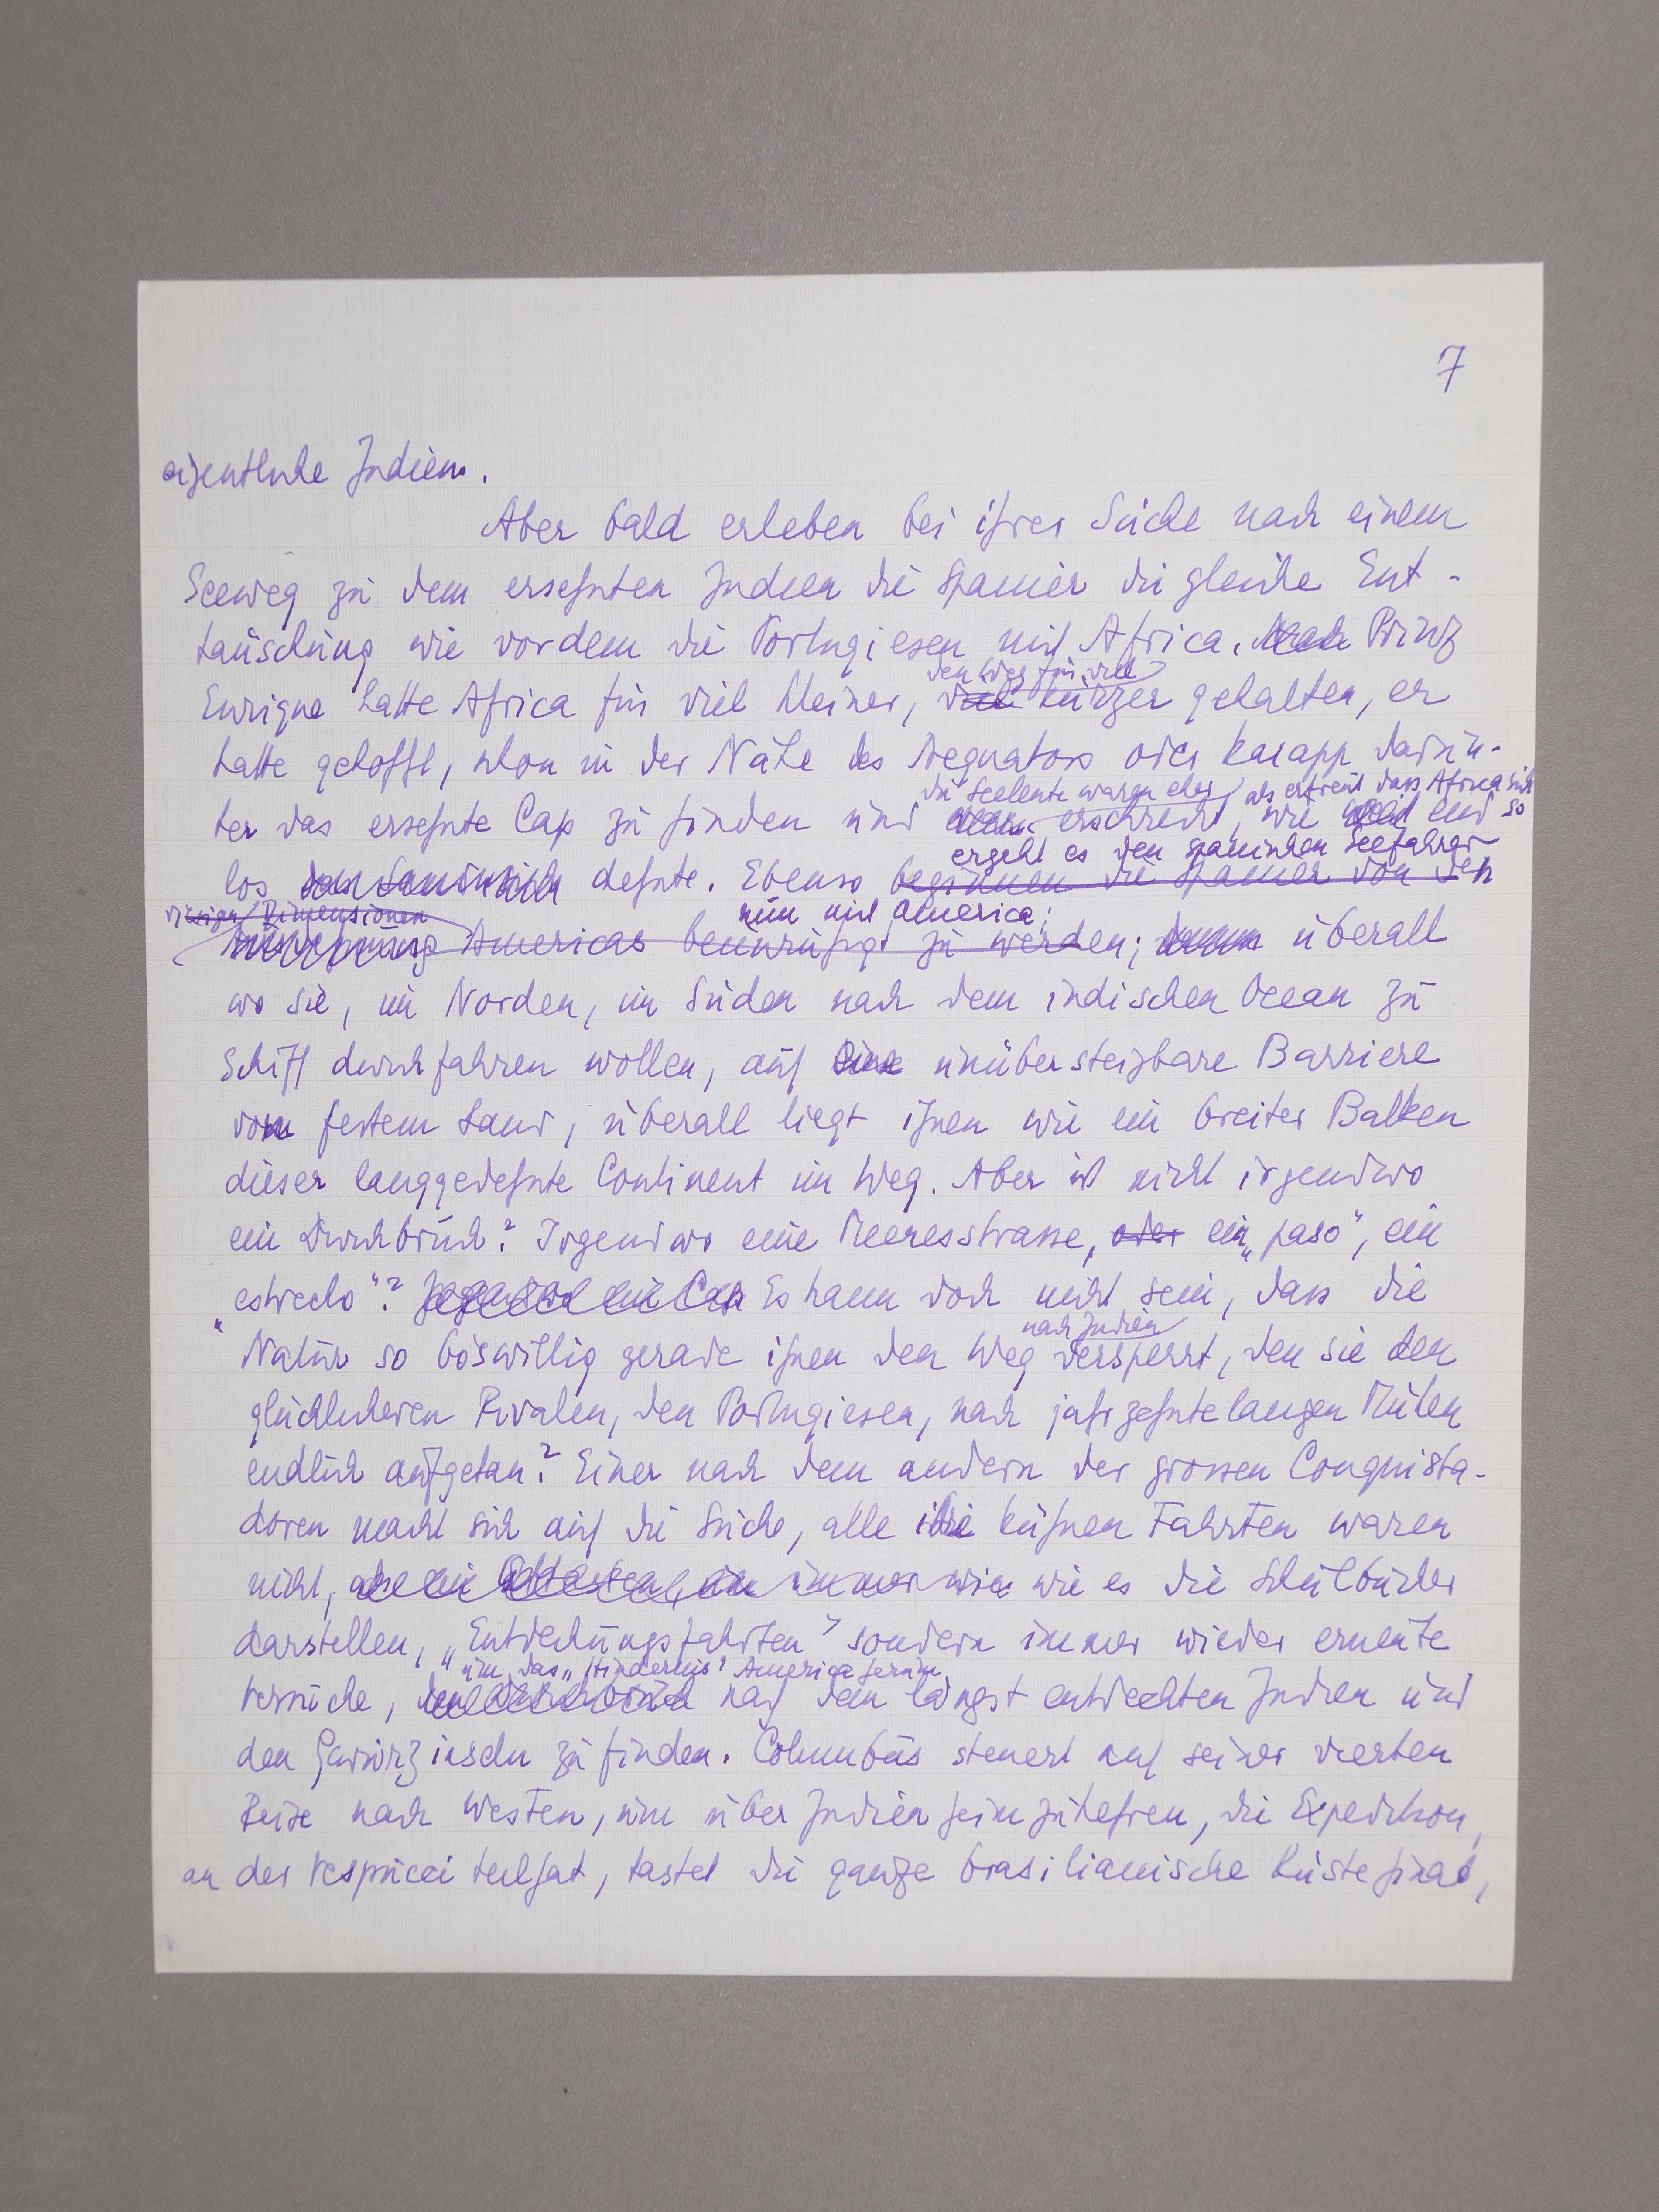 7
eigentliche Indien.
Aber bald erleben bei ihrer Suche nach einem
Seeweg zu dem ersehnten Indien die Spanier die gleiche Ent-
täuschung wie vordem die Portugiesen mit Africa. Nach Prinz
den Weg für viel
Enrique hatte Africa für viel kleiner, viel kürzer gehalten, er
hatte gehofft, schon in der Nähe des Aequators oder knapp darun-
die Seeleute waren eher als erfreut dass Africa sich
ter das ersehnte Cap zu finden und erschreckt, wie weit end so
ergeht es den spanischen Seefahrer
los dehnte. Ebenso beginnen die Spanier von den
riesigen Dimensionen nun mit America;
Americas beunruhigt zu werden; denn überall
wo sie, im Norden, im Süden nach dem indischen Ocean zu
Schiff durchfahren wollen, auf eine unübersteigbare Barriere
von festem Land, überall liegt ihnen wie ein breiter Balken
dieser langgedehnte Continent im Weg. Aber ist nicht irgendwo
ein Durchbruch? Irgendwo eine Meeresstrasse, oder ein „paso", ein
„estrecho"? Irgendwo ein Cap Es kann doch nicht sein, dass die
nach Indien
Natur so böswillig gerade ihnen den Weg versperrt, den sie den
glücklicheren Rivalen, den Portugiesen, nach jahrzehntelangen Mühen
endlich aufgetan? Einer nach dem andern der grossen Conquista-
doren macht sich auf die Suche, alle die kühnen Fahrten waren
nicht, immer wie es die Schulbücher
darstellen, „Entdeckungsfahrten" sondern immer wieder erneute
um das „Hindernis" America herum
Versuche, nach dem längst entdeckten Indien und
den Gewürzinseln zu finden. Columbus steuert auf seiner vierten
Reise nach Westen, um über Indien heimzukehren, die Expedition,
an der Vespucci teilhat, tastet die ganze brasilianische Küste hinab,